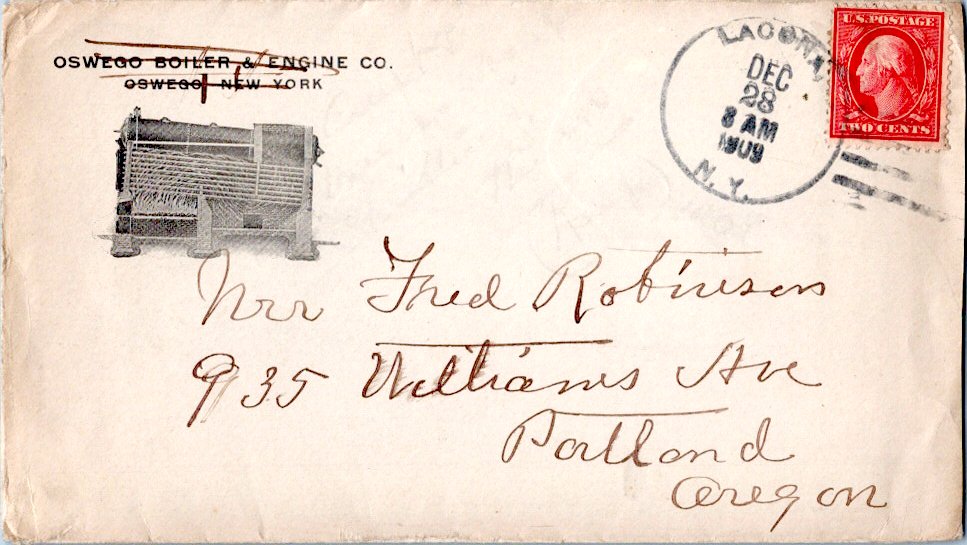 OSWEGO BOILER & ENGINE CO.
OSWEGO NEW YORK
LACONA,
DEC
28
8 AM
1909
N.Y.
U.S. POSTAGE
TWO CENTS
Mr Fred Robinson
935 Williams Ave
Portland
Oregon